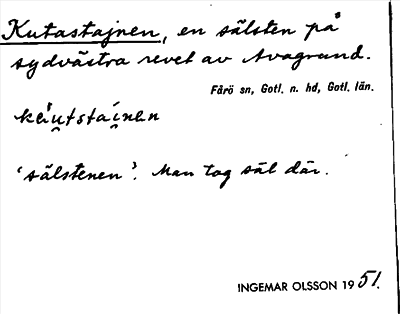 Kutastajnen, en sälsten på
sydvästra revet av Avagrund.
Fårö sn, Gotl. n. hd, Gotl. län.
käu̯tstái̯nen
'sälstenen'. Man tog säl där.
INGEMAR OLSSON 1951.